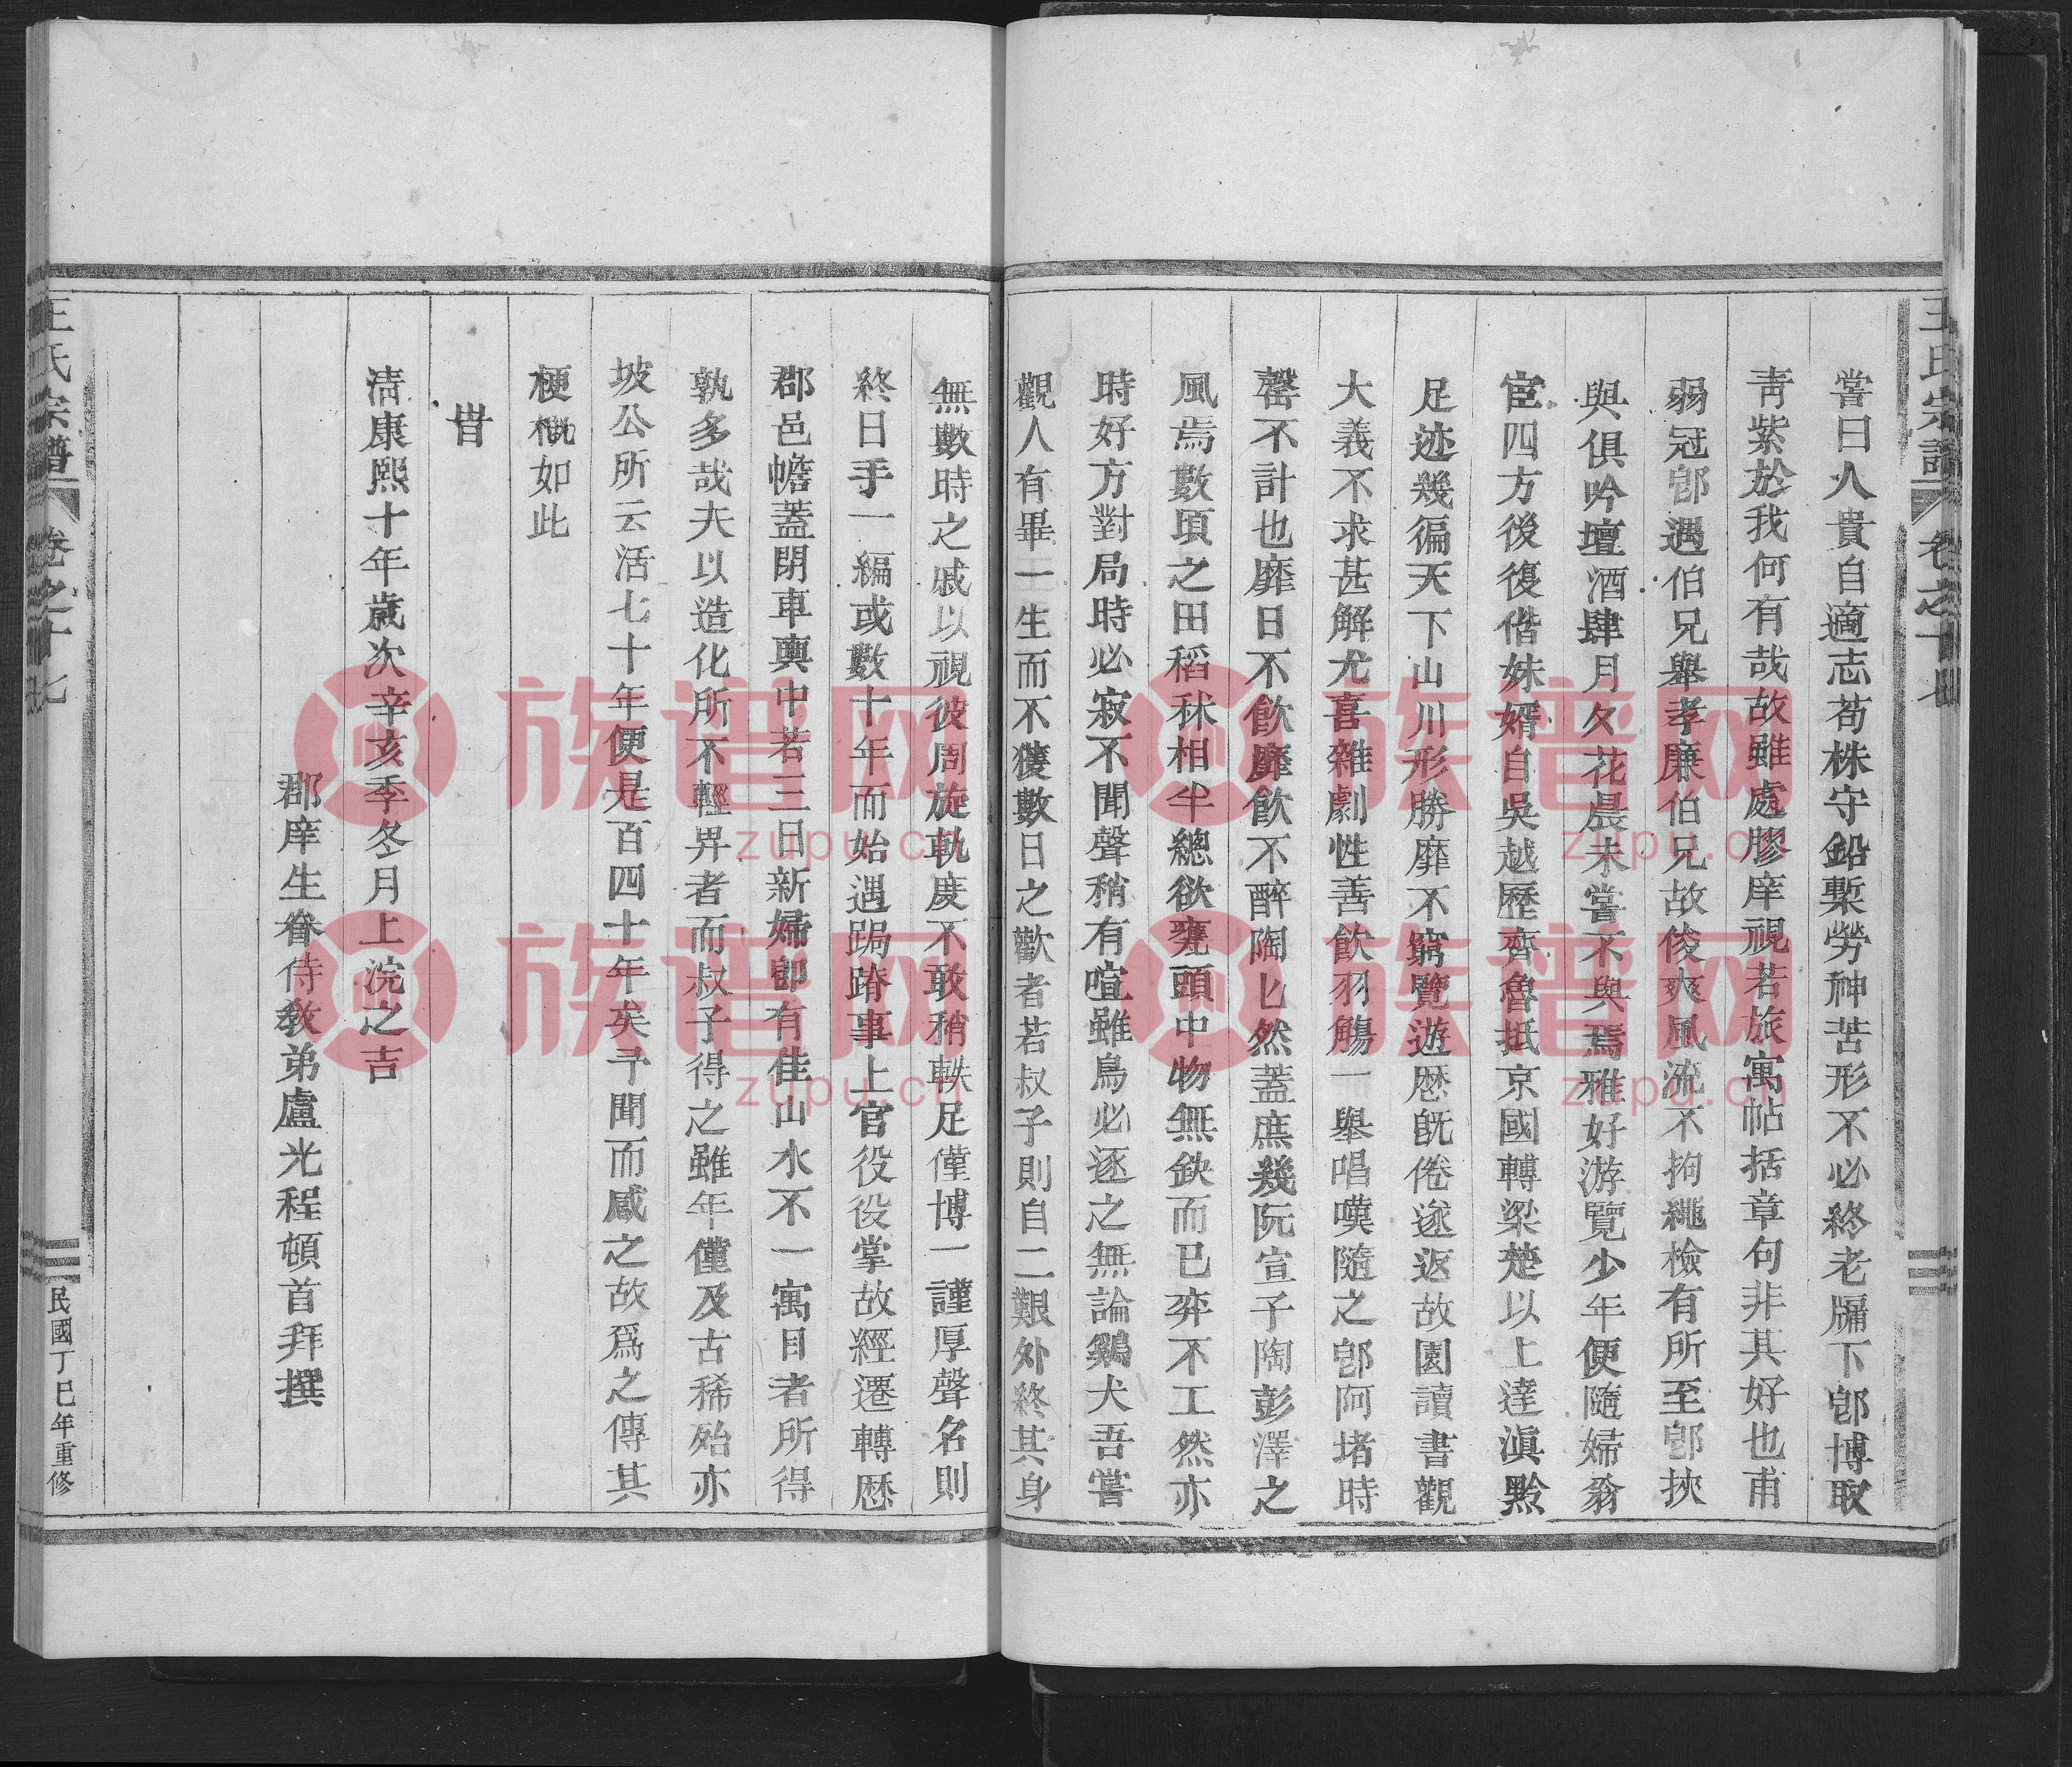 王氏宗譜 卷之十七
嘗曰人貴自適志苟株守鉛槧勞神苦形不必終老牖下卽博取
靑紫於我何有哉故雖處膠庠視若旅寓帖括章句非其好也甫
弱冠卽遇伯兄舉孝廉伯兄故俊爽風流不拘繩檢有所至卽挾
與俱吟壇酒肆月夕花晨未嘗不與焉雅好游覽少年便隨婦翁
宦四方後復偕妹婿自吳越歷齊魯抵京國轉梁楚以上達滇黔
足迹幾徧天下山川形勝靡不窮覽遊歷旣倦遂返故園讀書觀
大義不求甚解尤喜雜劇性善飮羽觴一舉唱嘆隨之卽阿堵時
罄不計也靡日不飮靡飮不醉陶匕然蓋庶幾阮宣子陶彭澤之
風焉數頃之田稻秫相半總欲甕頭中物無缺而已弈不工然亦
時好方對局時必寂不聞聲稍有喧雖鳥必逐之無論鷄犬吾嘗
觀人有畢一生而不獲數日之歡者若叔子則自二艱外終其身
無數時之戚以視彼周旋軌度不敢稍軼足僅博一謹厚聲名則
終日手一編或數十年而始遇跼蹐事上官役役掌故經遷轉歷
郡邑幨蓋閉車輿中若三日新婦卽有佳山水不一寓目者所得
孰多哉夫以造化所不輕畀者而叔子得之雖年僅及古稀殆亦
坡公所云活七十年便是百四十年矣予聞而感之故爲之傳其
梗槪如此
旹
淸康熙十年歲次辛亥季冬月上浣之吉
郡庠生眷侍敎弟盧光程頓首拜撰
王氏宗譜 卷之十七
民國丁巳年重修
族谱网
zupu.cn
族谱网
zupu.cn
族谱网
zupu.cn
族谱网
zupu.cn